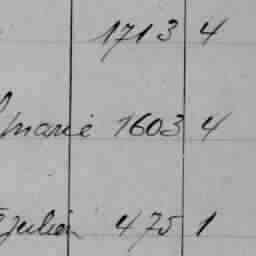 1713 4
marie 1603 4
julien 475 1